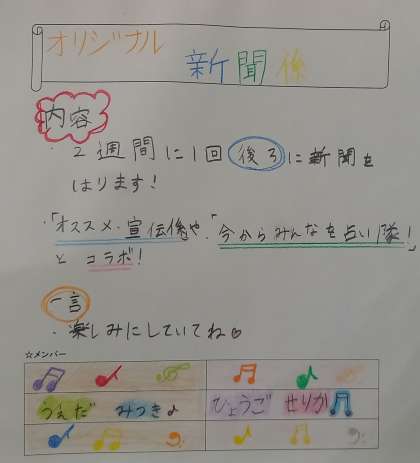 オリジナル
新聞係
内容
・2週間に1回後ろに新聞を
はります!
・「オススメ・宣伝係」や「今からみんなを占い隊!」
とコラボ!
一言
・楽しみにしていてね
☆メンバー
うえだ みつき♪ ひょうご せりか